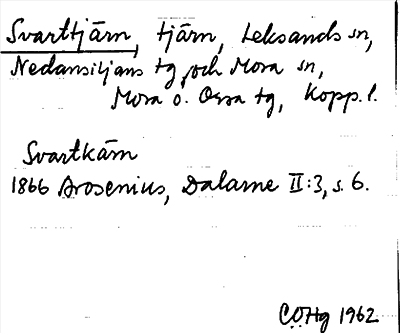 Svarttjärn, tjärn, Leksands sn,
Nedansiljans tg och Mora sn,
Mora o. Orsa tg, Kopp. l.
Svartkärn
1866 Arosenius, Dalarne II:3, s. 6.
COHg 1962